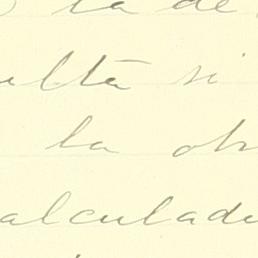 la de
ulta si
la ob
alculado